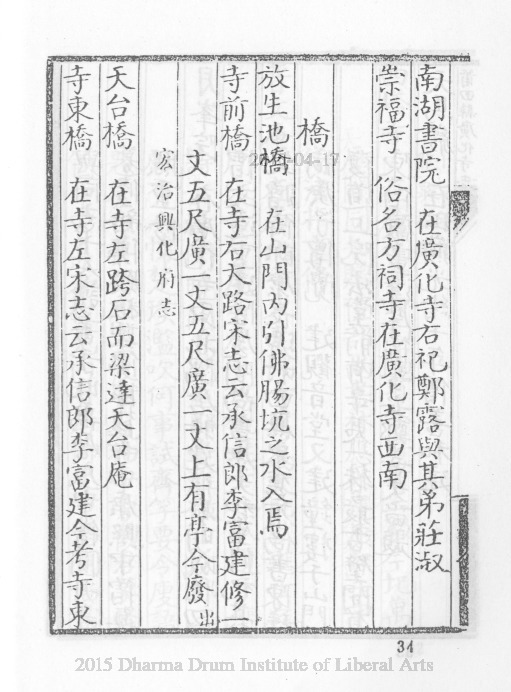 南湖書院　在廣化寺右祀鄭露與其弟莊淑
崇福寺　俗名方祠寺在廣化寺西南
橋
放生池橋　在山門內引佛腸坑之水入焉
寺前橋　在寺石大路宋志云承信郎李富建修一
丈五尺廣一丈五尺廣一丈上有亭今廢出
宏治興化府志
天台橋　在寺左跨石而梁達天台庵
寺東橋　在寺左宋志云承信郎李富建今考寺東
34
2015 Dharma Drum Institute of Liberal Arts